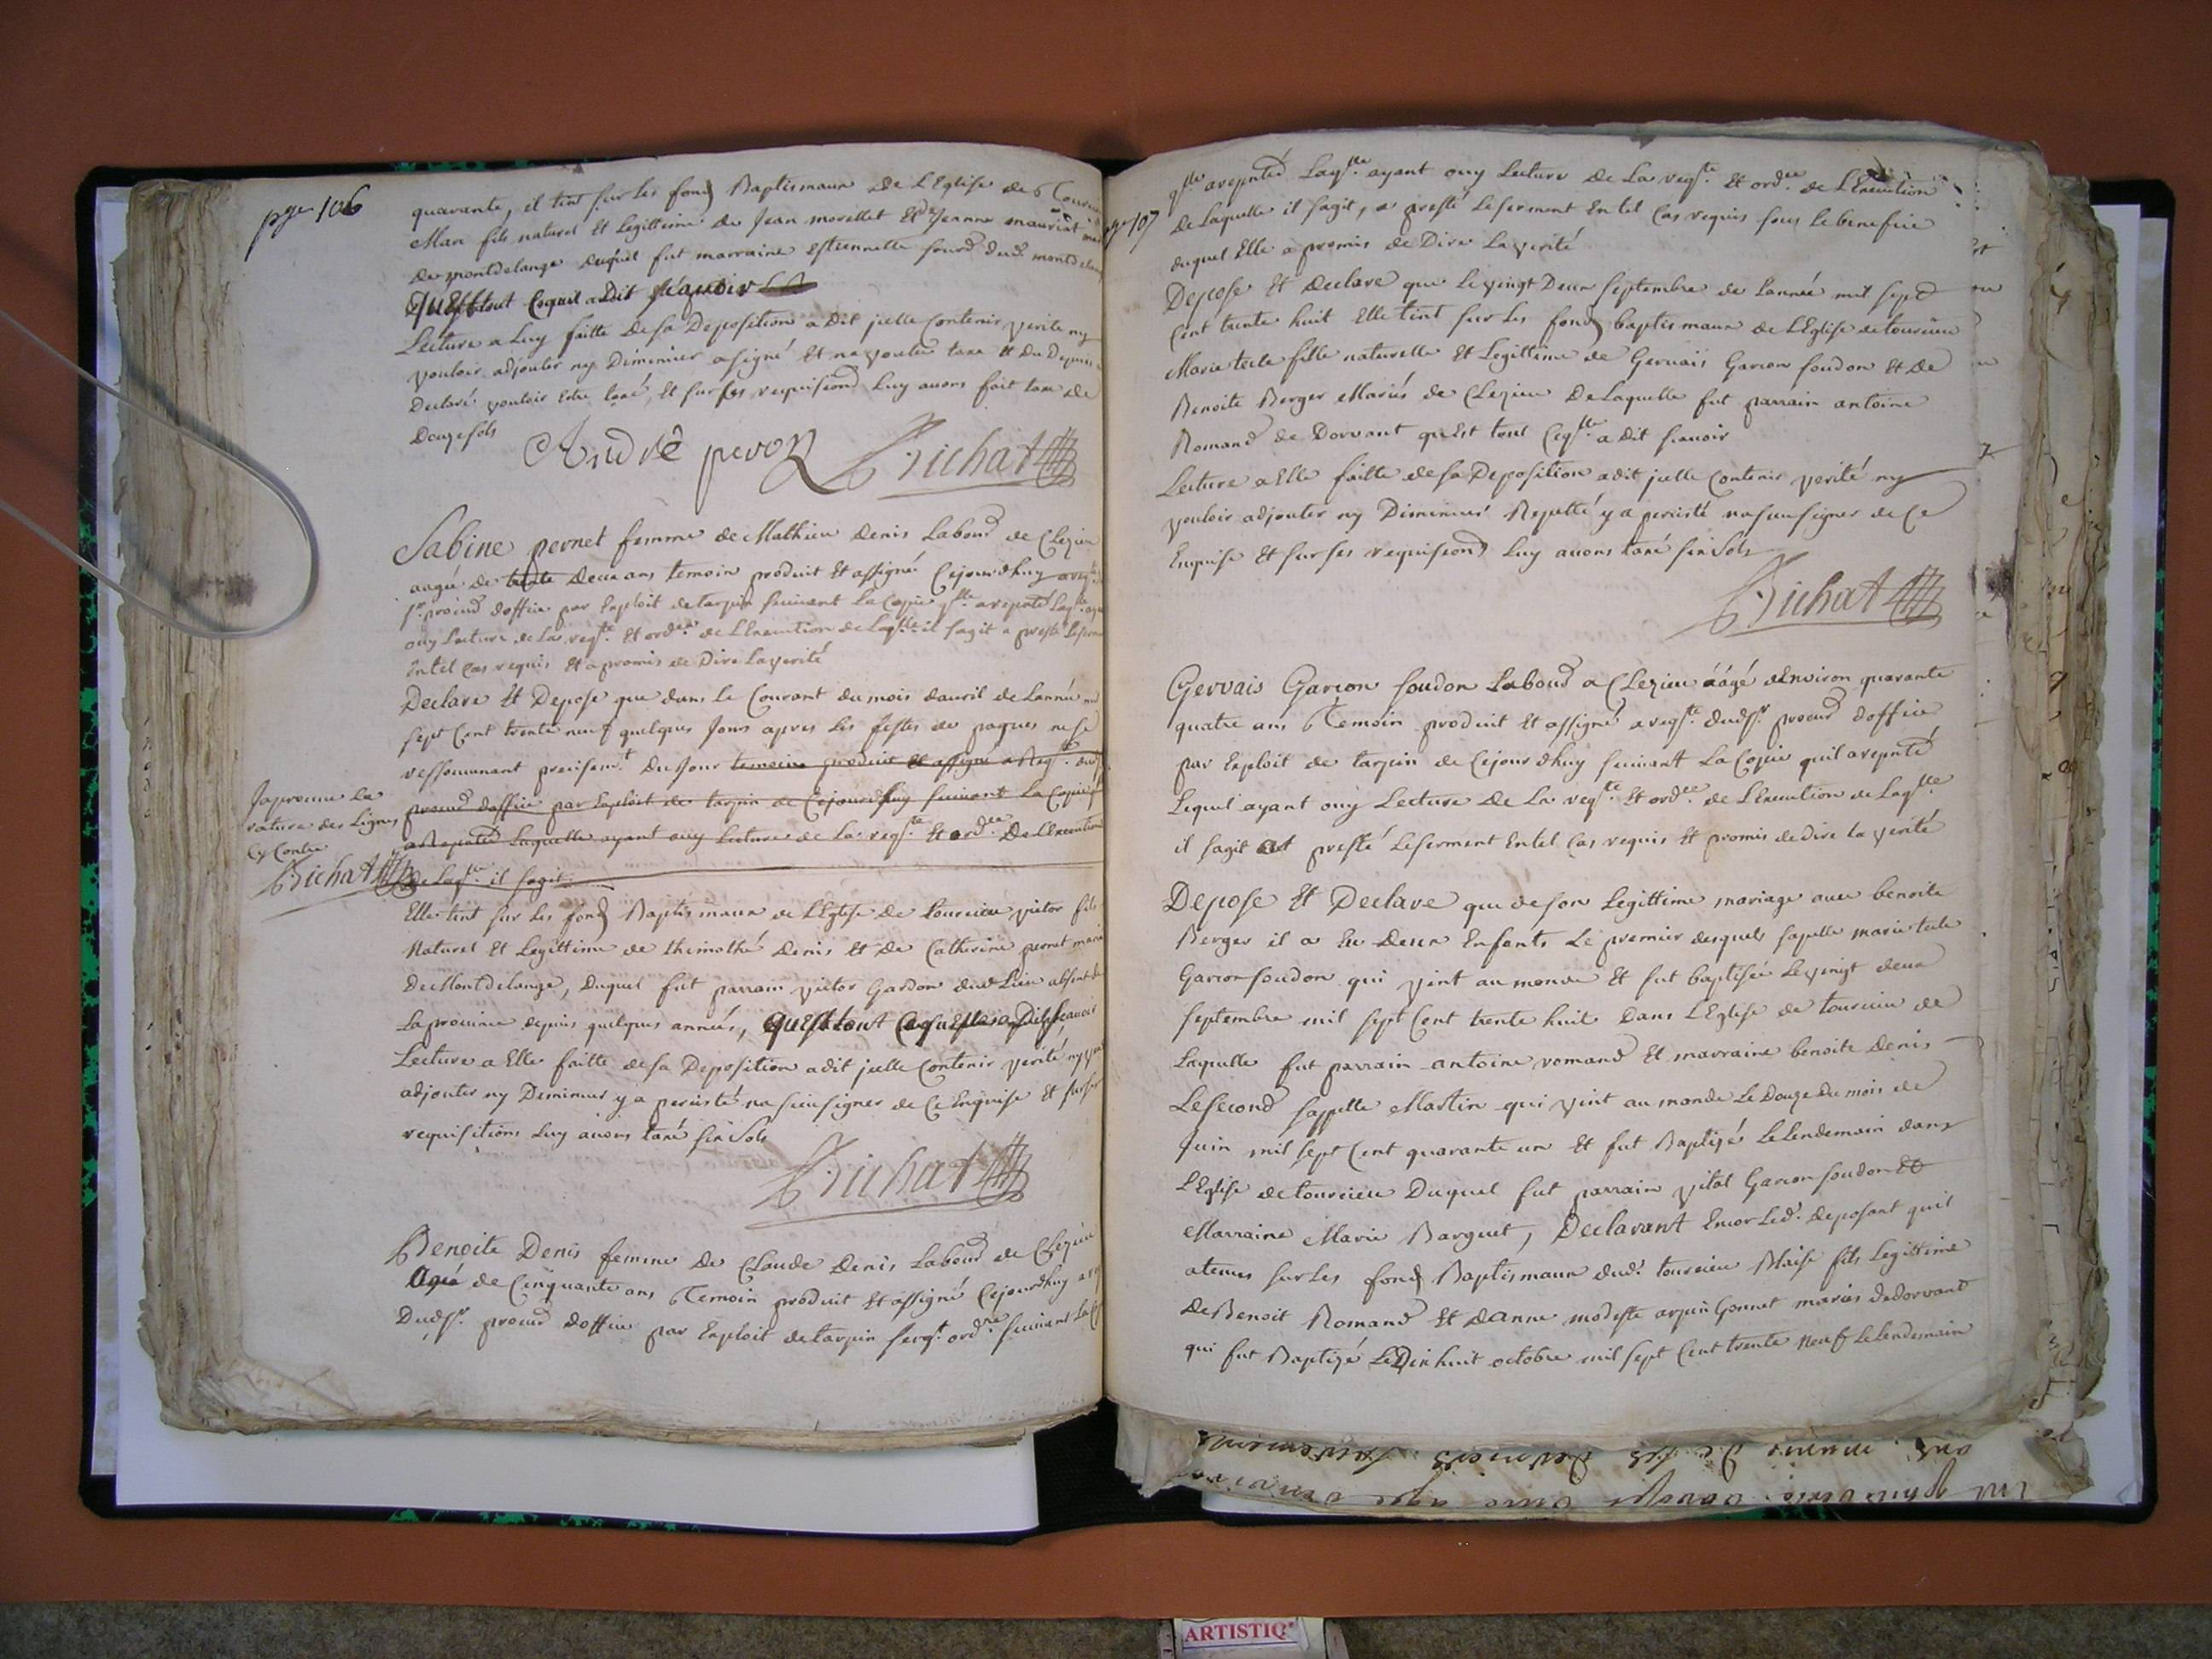 pge 106
quarante, il tint sur les fonds Baptismaux de L'Eglise de
Marc fils naturel Et Legittime de Jean morellet Et de Jeanne mauriat
de montdelange duquel fut marraine estiennette dud. montdelang
Quest tout Cequil a Dit sçauoir
Lecture a Luy faitte de sa Deposition a Dit jcelle Contenir verite ny
vouloir adjouter ny Diminuer a signé Et na voulu taxe Et Du Depuis
Declaré vouloir Estre taxé, Et sur ses requisitions Luy auons fait taxe de
Douze sols
André peron Bichat
Sabine pernet femme de Mathieu Denis Labour de Clezieu
aagée de trente Deux ans temoin produit Et assigné Cejourdhuy a reqte
Sr. procur doffice par Exploit de tarpin suiuant La Copie qlle a repnté Laqlle
ouy Lecture de La reqte Et ordce de L'Execution de Laqlle il sagit a presté Leserm
En tel Cas requis Et a promis de Dire La verité
Declare Et Depose que dans Le Courant du mois dauril de Lannée
sept Cent trente neuf quelques Jours apres Les festes de paques ne se
ressouuenant precisemt Du Jour temoin produit Et assigné a Reqte dud
procur doffice par Exploit de tarpin de Cejourdhuy suiuant La Copie q
a Repnté Laquelle ayant ouy Lecture de La reqte Et ordce De L'Execution
de Laqlle il sagit
Japreuue La
rature des Lignes
Cy Contre
Bichat
Elle tint sur Les fonds Baptismaux de L'Eglise de tourcieu victor fils
Naturel Et Legittime de thimothé Denis Et de Catherine pernet marié
De Montdelange, Duquel fut parrain victor Gardon dud Lieu absent de
La prouince depuis quelques années, quest tout Ce quelle a Dit sçauoir
Lecture a Elle faitte de sa Deposition a dit jcelle Contenir verité, ny
adjouter ny Diminuer y a persisté na sceu signer de Ce Enquise Et sur ses
requisitions Luy auons taxé six Sols
Bichat
Benoite Denis femme de Claude Denis Labour de Clezieu
Agée de Cinquante ans Temoin produit Et assigné Cejourdhuy a
Dudsr. procur doffice par Exploit de tarpin sergt. ordre suiuant La
pge 107
qlle a repnté Laqlle ayant ouy Lecture de La reqte Et ordce de L'Execution
de Laquelle il sagit, a presté Leserment En tel Cas requis sous le benefice
duquel Elle a promis de Dire La verité
Depose Et declare que Le vingt Deux septembre de Lannée mil sept
Cent trente huit Elle tint sur Les fonds baptismaux de L'Eglise de tourcieu
Marie tecle fille naturelle Et Legittime de Geruais Garcon foudon Et De
Benoite Berger Mariés de Clezieu De Laquelle fut parrain antoine
Romand de Dorvant quest tout Ceqlle a dit scauoir
Lecture a Elle faitte de sa Deposition a dit jcelle Contenir verité ny
vouloir adjouter ny Diminuer Repetté y a persisté na sceu signer de Ce
Enquise Et sur ses requisitions Luy auons taxé six Sols
Bichat
Gervais Garcon foudon Labour a Clezieu áágé denuiron quarante
quatre ans Temoin produit Et assigné a reqte dudsr procur doffice
par Exploit de tarpin de Cejourdhuy suiuant La Copie quil a repnté
Lequel ayant ouy Lecture De La reqte Et ordce de L'Execution de Laqlle
il sagit presté Leserment En tel Cas requis Et promis de dire La verité
Depose Et Declare que de son Legittime mariage auec benoite
Berger il a Eu Deux Enfants Le premier desquels sapelle marie tecle
Garcon foudon qui vint au monde Et fut baptisée Le vingt deux
septembre mil sept Cent trente huit Dans L'Eglise de tourcieu de
Laquelle fut parrain antoine romand Et marraine benoite Denis
Le second sappelle Martin qui vint au monde Le Douze Du mois de
Juin mil sept Cent quarante un Et fut Baptizé Le lendemain dans
L'Eglise de tourcieu Duquel fut parrain vital Garcon foudon Et
Marraine Marie Barguet, Declarant Encor Led. deposant quil
a tenus sur Les fonds Baptismaux dud. tourcieu Blaise fils Legittime
De Benoit Romand Et danne modeste Gonnet mariés de dorvant
qui fut Baptizé Le Dix huit octobre mil sept Cent trente Neuf Le lendemain
ARTISTIQ